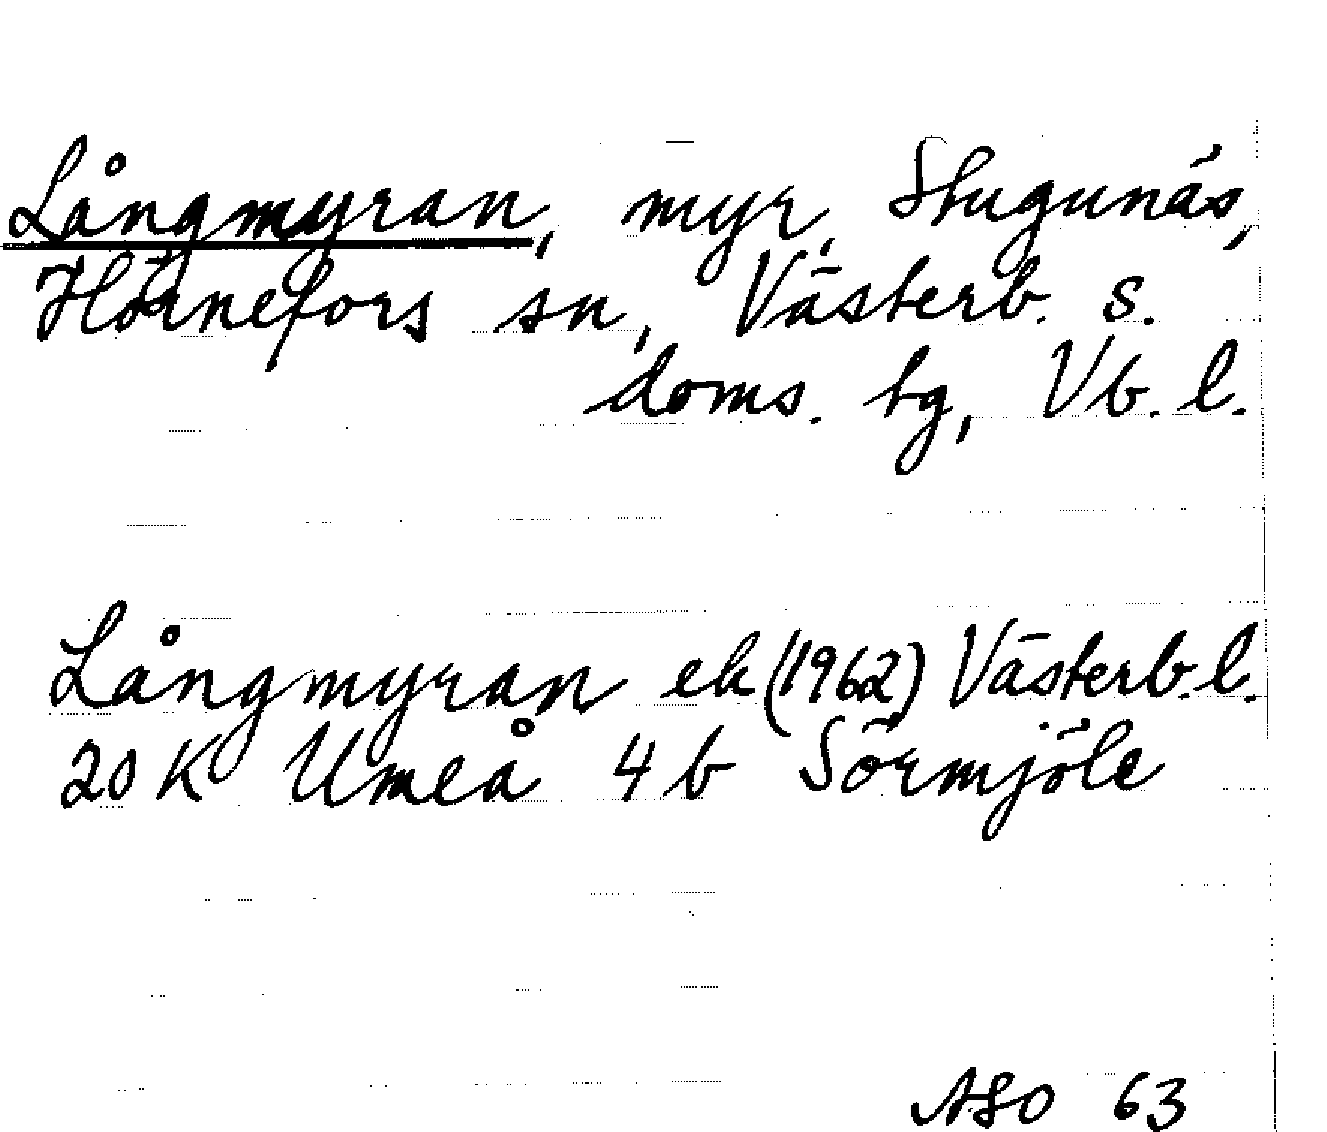 Långmyran, myr, Stugunäs,
Hörnefors sn, Västerb. s.
doms. tg, Vb. l.
Långmyran ek (1962) Västerb. l.
20 K Umeå 4 b Sörmjöle
ASO 63